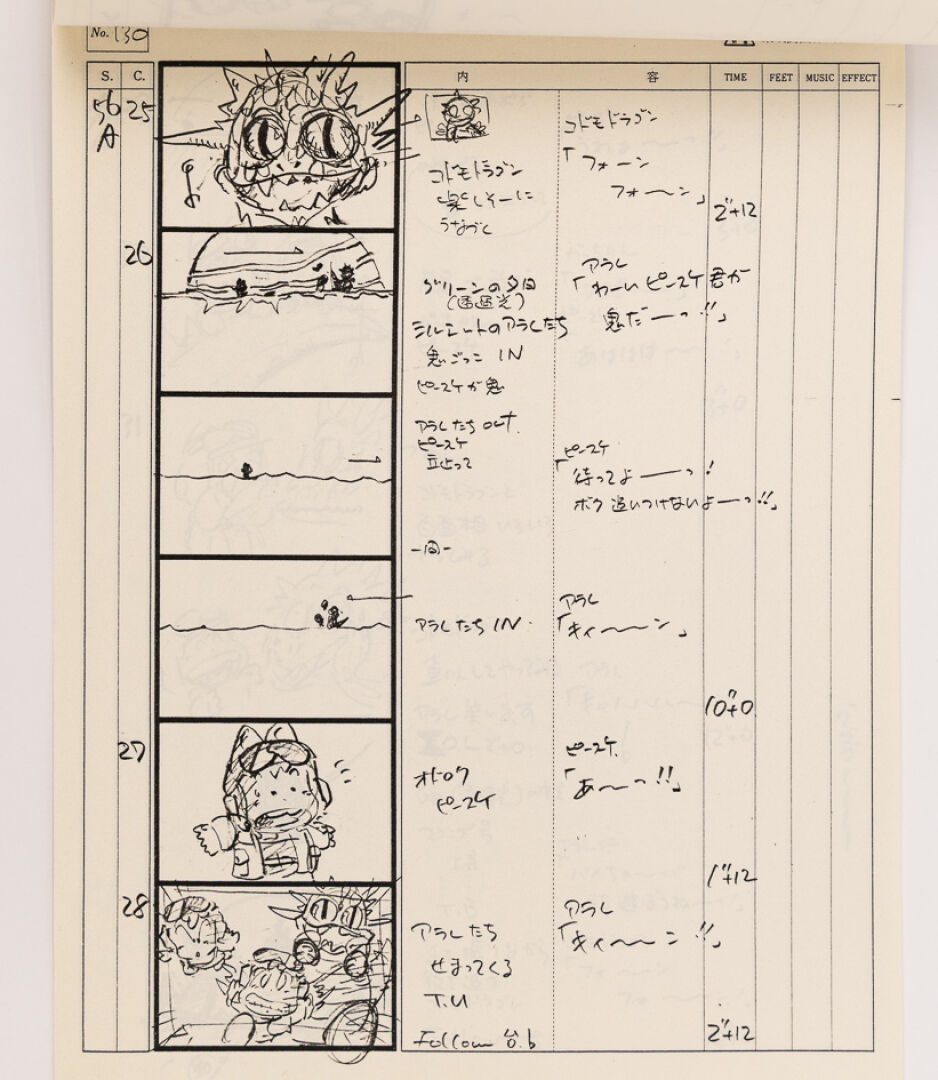 No. 130
S. C. 内 容 TIME FEET MUSIC EFFECT
56 A
25
コドモドラゴン
楽しそーに
うなづく
コドモドラゴン
「フォーン
フォ〜ン」
2"+12
26
グリーンの夕日
(透過光)
シルエットのアラレたち
鬼ごっこ IN
ピースケが鬼
アラレ
「わーい ピースケ君が
鬼だ——っ!!」
アラレたち OUT.
ピースケ
立止って
ピースケ
「待ってよ——っ!
ボク 追いつけないよ——っ!!」
-間-
アラレたち IN
アラレ
「キィ〜〜ン」
10"+0
27
オドロク
ピースケ
ピースケ
「あ〜〜っ!!」
1"+12
28
アラレたち
せまってくる
T.U
Follow 台.b
アラレ
「キィ〜〜ン!!」
2"+12